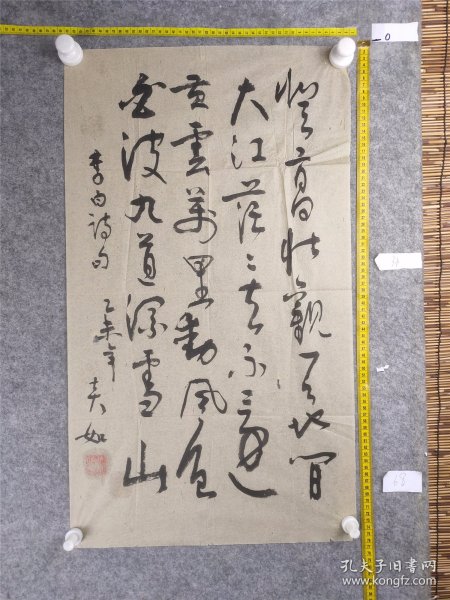 登高壯觀天地間
大江茫々去不還
黄雲萬里動風色
白波九道流雪山
李白詩句
乙未年
0
68
孔夫子旧书网
www.kongfz.com